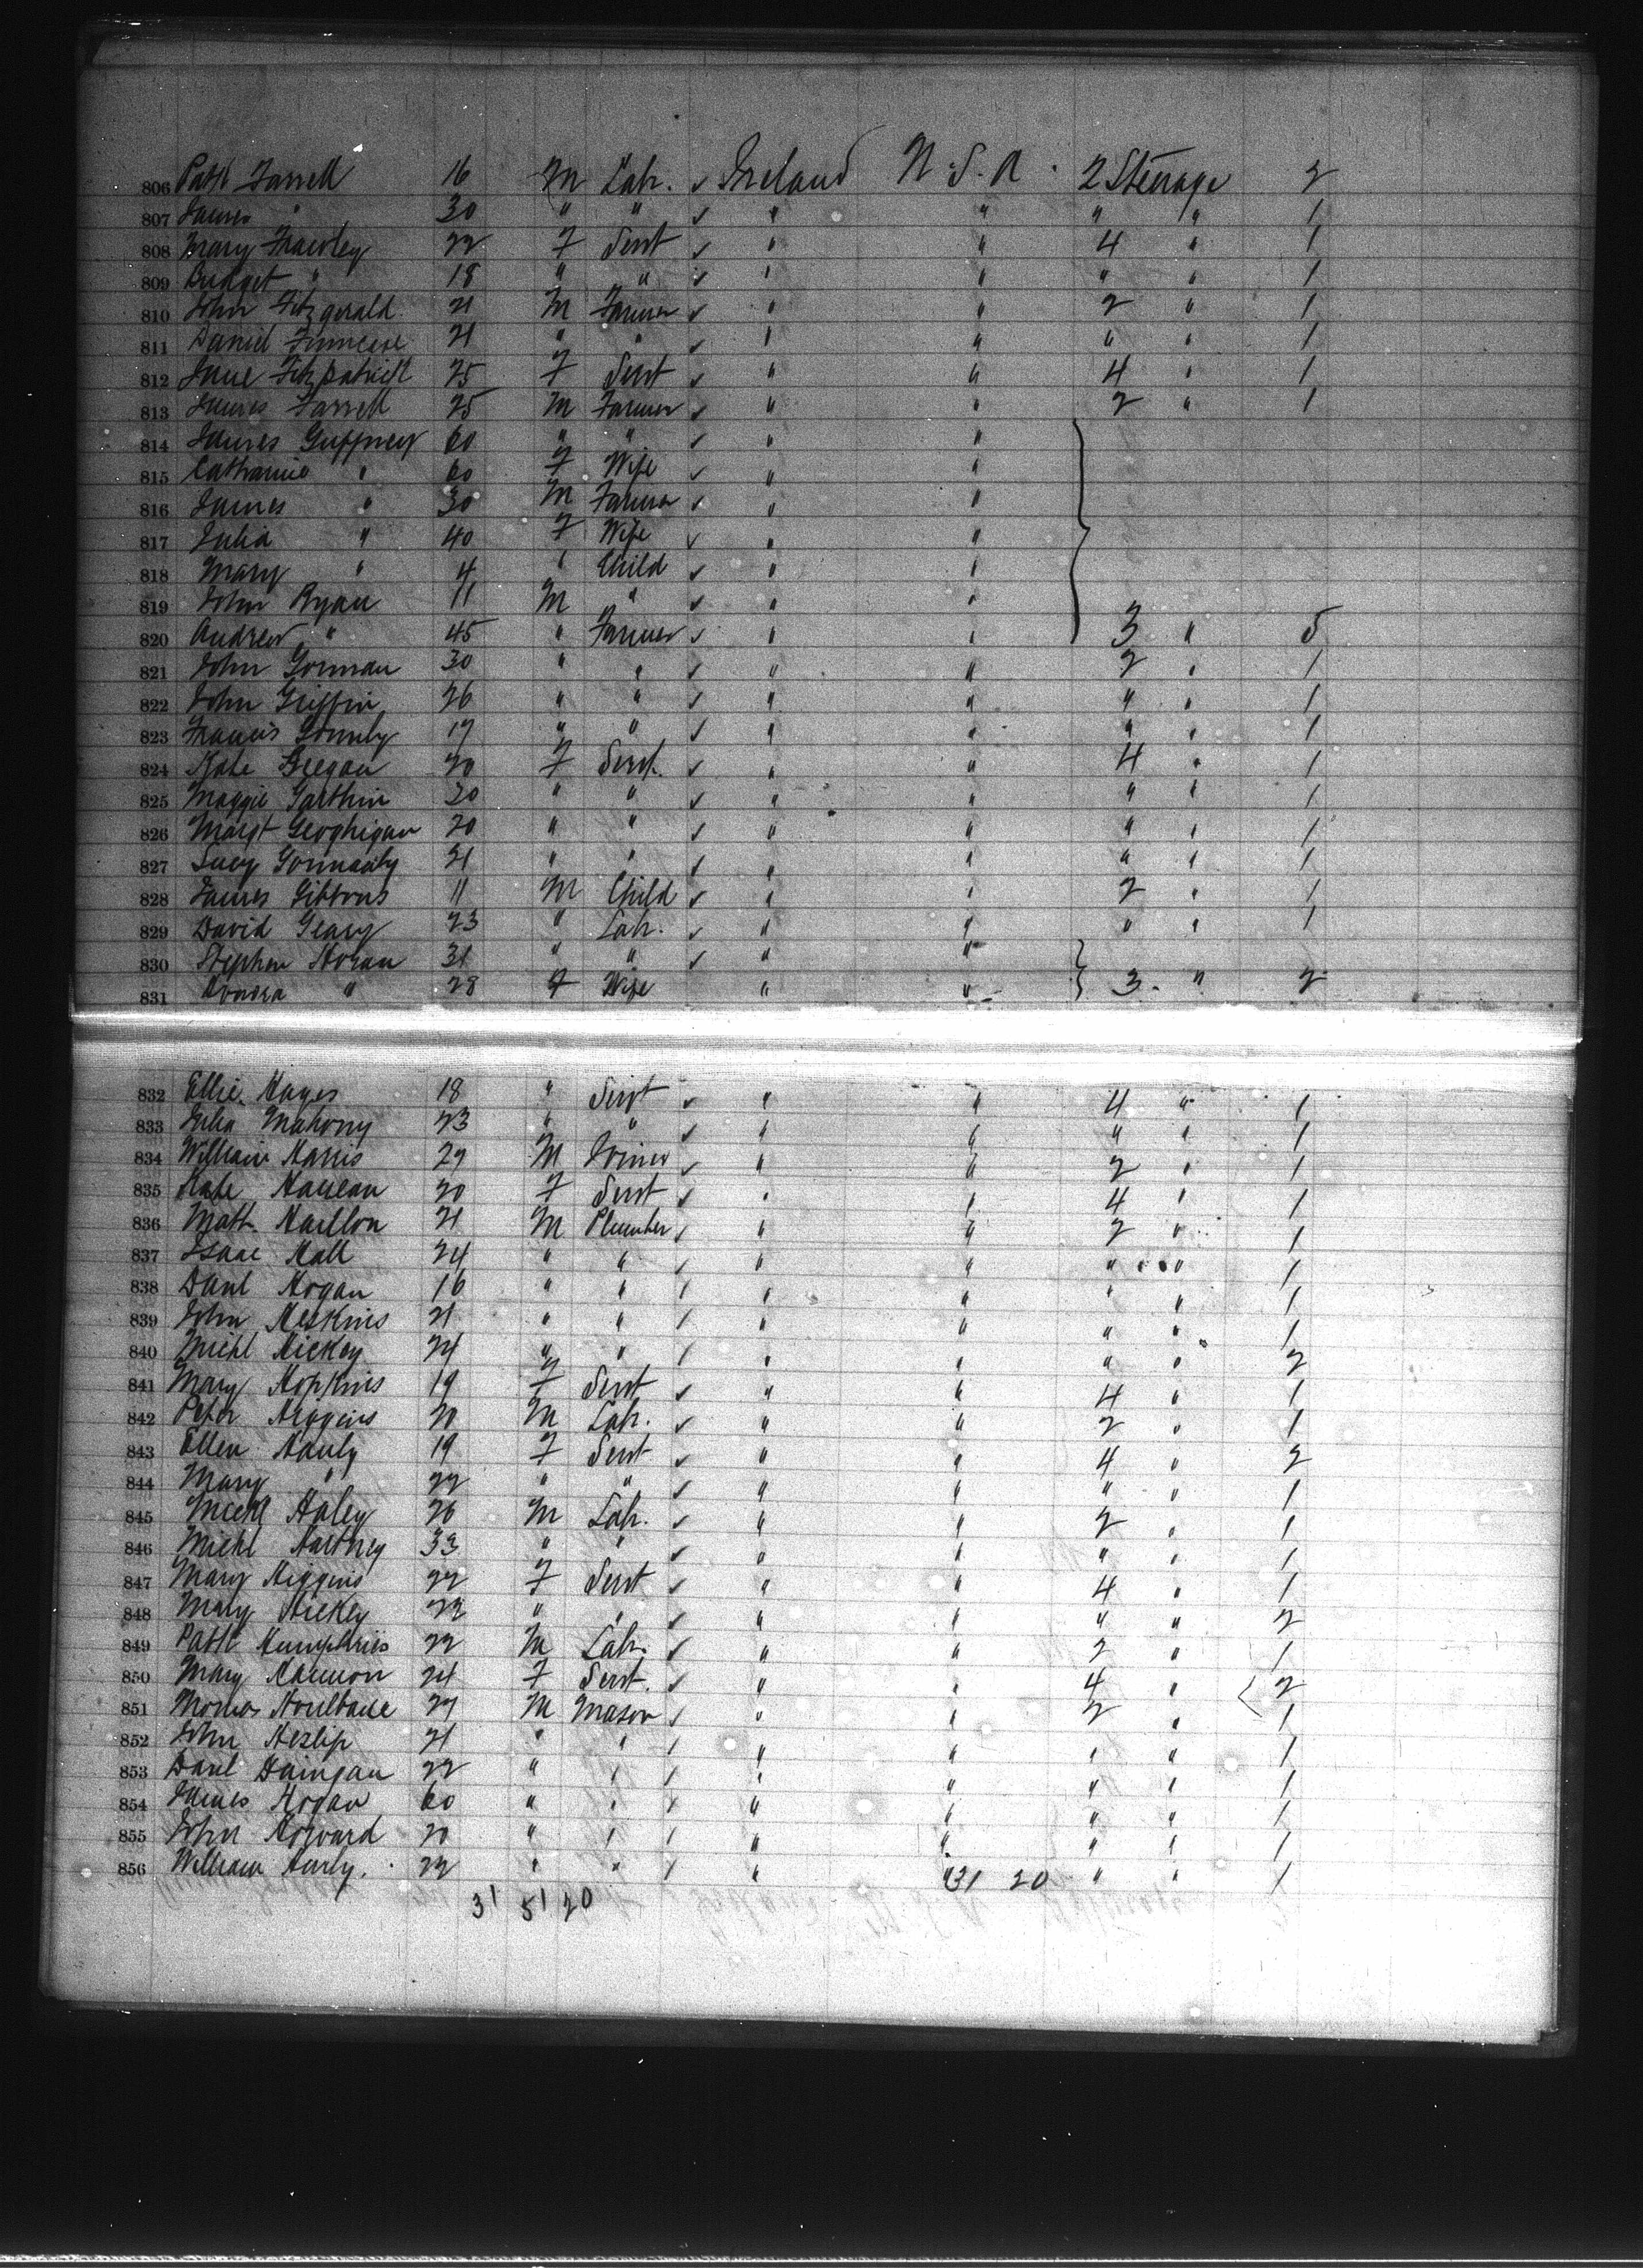 806 Patk Farrell 16 M Labr. ✓ Ireland U.S.A. 2 Steerage 2
807 James " 30 " " ✓ " " " " 1
808 Mary Frawley 22 F Servt ✓ " " 4 " 1
809 Bridget " 18 " " ✓ " " " " 1
810 John Fitzgerald 21 M Farmer ✓ " " 2 " 1
811 Daniel 21 " " ✓ " " " " 1
812 Jane Fitzpatrick 25 F Servt ✓ " " 4 " 1
813 James Farrell 25 M Farmer ✓ " " 2 " 1
814 James Guffney 60 " " ✓ " "
815 Catharine " 60 F Wife ✓ " "
816 James " 30 M Farmer ✓ " "
817 Julia " 40 F Wife ✓ " "
818 Mary " 4 " Child ✓ " "
819 John Ryan 11 M " ✓ " "
820 Andrew " 45 " Farmer ✓ " " 3 " 5
821 John Gorman 30 " " ✓ " " 2 " 1
822 John Griffin 26 " " ✓ " " " " 1
823 Francis Gormly 17 " " ✓ " " " " 1
824 Kate Geegan 20 F Servt. ✓ " " 4 " 1
825 Maggie 20 " " ✓ " " " " 1
826 Margt Geoghigan 20 " " ✓ " " " " 1
827 Lucy Gormally 21 " " ✓ " " " " 1
828 James Gibbons 11 M Child ✓ " " 2 " 1
829 David Geary 23 " Labr. ✓ " " " " 1
830 Stephen Horan 31 " " ✓ " "
831 Honora " 28 F Wife " " 3. " 2
832 Ellie Hayes 18 " Servt ✓ " " 4 " 1
833 Julia Mahony 23 " " ✓ " " " " 1
834 William Harris 29 M Joiner ✓ " " 2 " 1
835 Kate 20 F Servt ✓ " " 4 " 1
836 Matt. Hanlon 21 M Plumber ✓ " " 2 " 1
837 Isaac Hall 24 " " ✓ " " " " 1
838 Danl Hogan 16 " " ✓ " " " " 1
839 John Heskins 21 " " ✓ " " " " 1
840 Michl Hickey 24 " " ✓ " " " " 2
841 Mary Hopkins 19 F Servt ✓ " " 4 " 1
842 Peter Higgins 20 M Labr. ✓ " " 2 " 1
843 Ellen Hanly 19 F Servt ✓ " " 4 " 2
844 Mary " 22 " " ✓ " " " " 1
845 Michl Haley 26 M Labr. ✓ " " 2 " 1
846 Michl Hartney 33 " " ✓ " " " " 1
847 Mary Higgins 22 F Servt ✓ " " 4 " 1
848 Mary Hickey 22 " " ✓ " " " " 2
849 Patk Humphries 22 M Labr. ✓ " " 2 " 1
850 Mary Hannon 24 F Servt. ✓ " " 4 " 2
851 Thomas 27 M Mason ✓ " " 2 " 1
852 John Heslip 21 " " ✓ " " " " 1
853 Danl 22 " " ✓ " " " " 1
854 James Hogan 60 " " ✓ " " " " 1
855 John Howard 20 " " ✓ " " " " 1
856 William Hurly. 22 " " ✓ " " " " 1
31 20
31 51 20